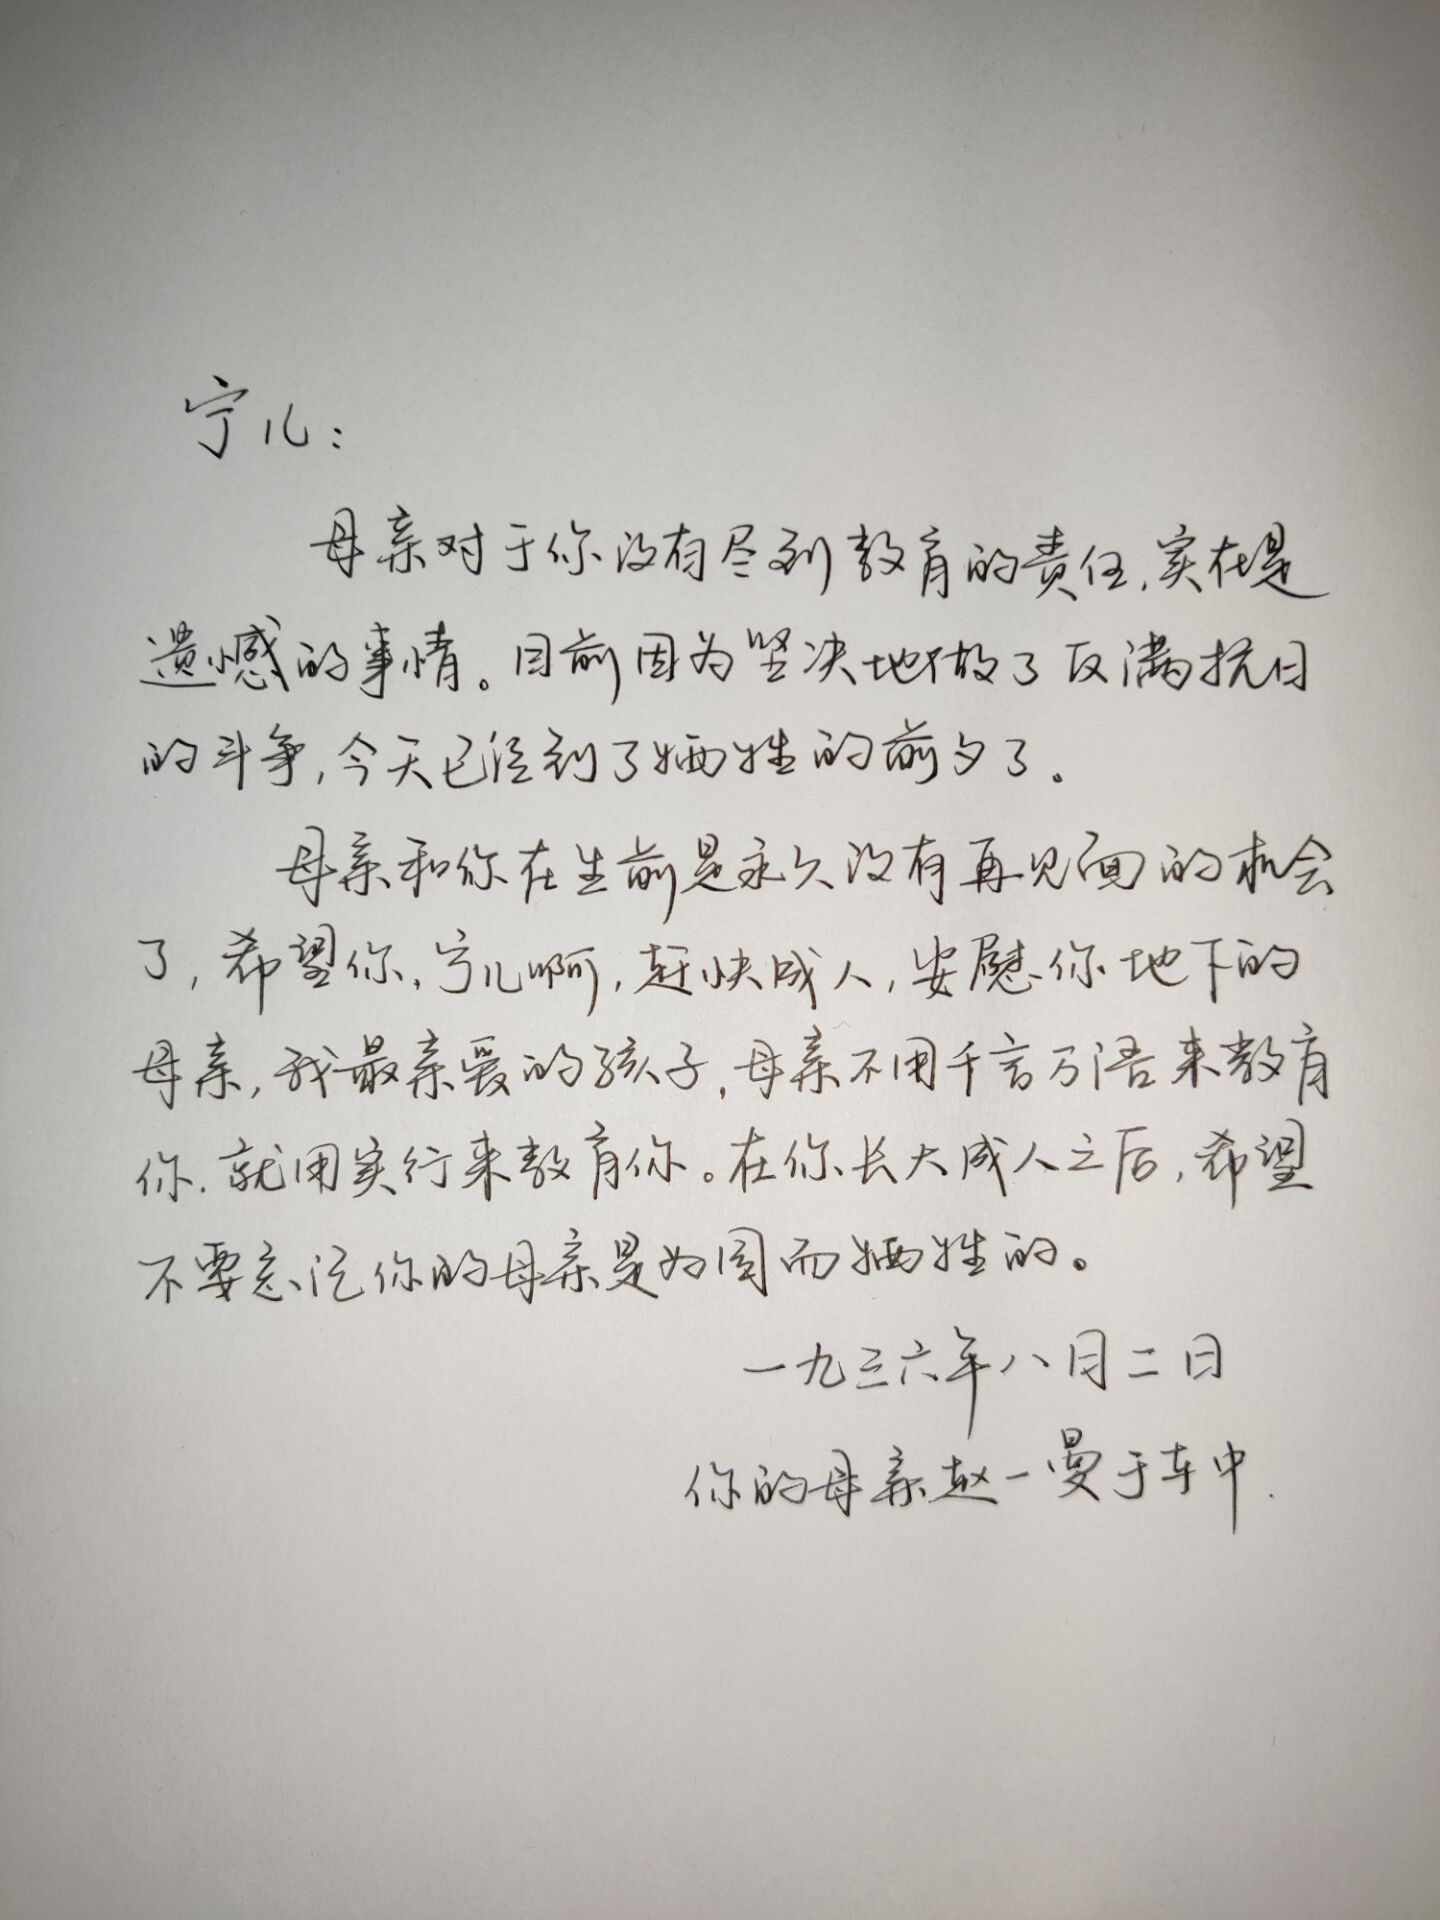 宁儿：
母亲对于你没有尽到教育的责任，实在是
遗憾的事情。目前因为坚决地做了反满抗日
的斗争，今天已经到了牺牲的前夕了。
母亲和你在生前是永久没有再见面的机会
了，希望你，宁儿啊，赶快成人，安慰你地下的
母亲，我最亲爱的孩子，母亲不用千言万语来教育
你，就用实行来教育你。在你长大成人之后，希望
不要忘记你的母亲是为国而牺牲的。
一九三六年八月二日
你的母亲赵一曼于车中.